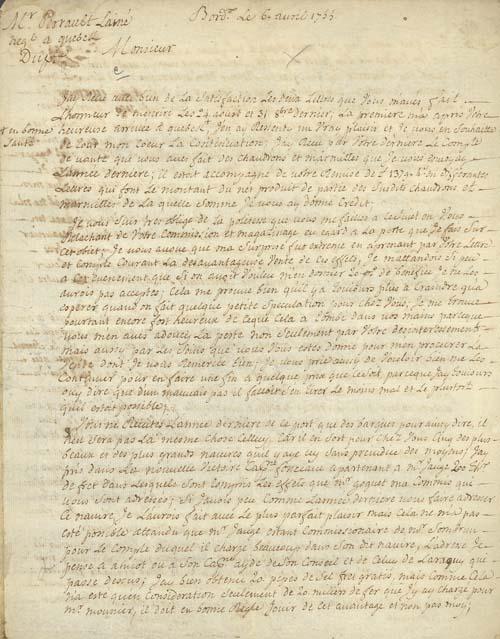 Mr. Perrault L'aîné
Negt. a quebek
Bordx. Le 6 avril 1755
Monsieur
J'ay Reçu avec bien de La Satisfaction Les deux Lettres que Vous m'avés fait
L'honneur de m'écrire Les 24 aoust et 31 8bre dernier, La première m'a apris Votre
et en bonne santé
heureuse arrivée a quebek, J'en ay Ressenti un Vray plaisir et Je vous en Souhaitte
de tout mon Coeur La Continuation; J'ay Reçu par Votre derniere Le Compte
de vante que vous avés fait des Chaudrons et marmittes que Je vous envoyay
L'année derniere; il estoit accompagné de votre Remise de
Lettres qui font Le montant du net produit de partie des Susdits Chaudrons et
marmittes de La quelle Somme Je vous ay donné Credit;
Je vous Suis tres obligé de La politesse que vous me faittes a ce Sujet en
Relachant de Votre Commission et magazinage eu egard a La perte que J'ay fait Sur
Cet objet; Je vous avoue que ma Surprise fut extreme en aprenant par Votre Lettre
et Compte Courant La desavantageuse Vente de Ces effets, Je m'attandois Si peu
a Cet evenement que Si on avoit Voulu m'en donner 20 de benefice Je ne Les
aurois pas acceptés; Cela me prouve bien qu'il y a Toujours plus a Craindre qu'a
esperer quand on fait quelque petite Speculation pour chez Vous, Je me trouve
pourtant encore fort heureux de ce qu'il Cela a tombé dans vos mains parceque
vous m'en avés adoucy La perte non Seulement par Votre desinteressement
mais aussy par Les Soins que vous Vous estes donné pour m'en procurer La
Vente dont Je vous Remercie bien, Je vous prie aussi de Vouloir bien me Les
Continuer pour en faire une fin a quelque prix que Ce soit parceque J'ay toujours
ouy dire que d'un mauvais pas il falloit S'en tirer Le moins mal et Le plustost
qu'il estoit possible;
L'année derniere de ce port que des barques pour ainsy dire, il
n'en Sera pas La mesme Chose Celle cy. Car il en Sort pour Chez Vous Cinq des plus
beaux et des plus grands navires qu'il y aye icy Sans prejudice des moyens; J'ay
pris dans Les nouvelle Victoire Capne. fonciaux apartenant a mr. Jauge 200 Thx
de fret dans Lesquels Sont Compris Les effets que mr. goguet m'a Commis qui
vous Sont adressés; Si J'avois peu Comme L'année derniere vous faire adresser
Ce navire, Je L'aurois fait avec Le plus parfait plaisir mais Cela ne m'a pas
esté possible attandu que mr. Jauge estant Commissionaire de
pour Le Compte duquel il charge beaucoup dans Son dit navire, L'adresse Je
pense a amiot ou a Son Capne. aydé de Son Conseil et de Celuy de Laraguy qui
passe dessus; J'ay bien obtenu 20 de Sel fret gratis, mais Comme Cela
n'a esté qu'en Consideration Seulement de 20 milliers de fer que J'y ay chargé pour
mr. mounier, il doit en bonne Regle Jouir de Cet avantage et non pas moy;